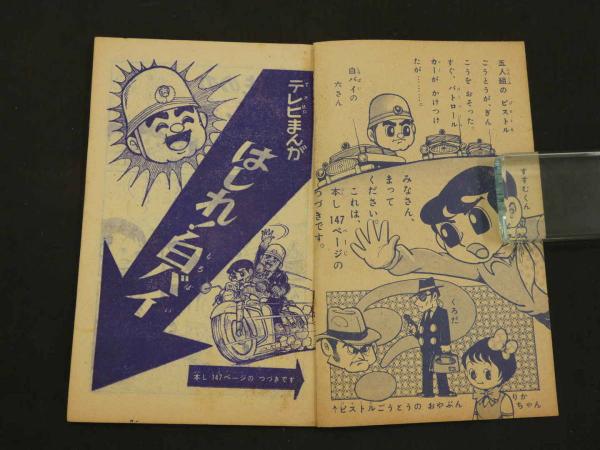 テレビまんが
はしれ！白バイ
本し147ページの つづきです
五人組の ピストル
ごうとうが、ぎん
こうを おそった。
すぐ、パトロール
カーが かけつけ
たが……。
白バイの
六さん
すすむくん
みなさん、
まって
ください。
これは、
本し147ページの
つづきです。
くろだ
↑ピストルごうとうの おやぶん
りか
ちゃん